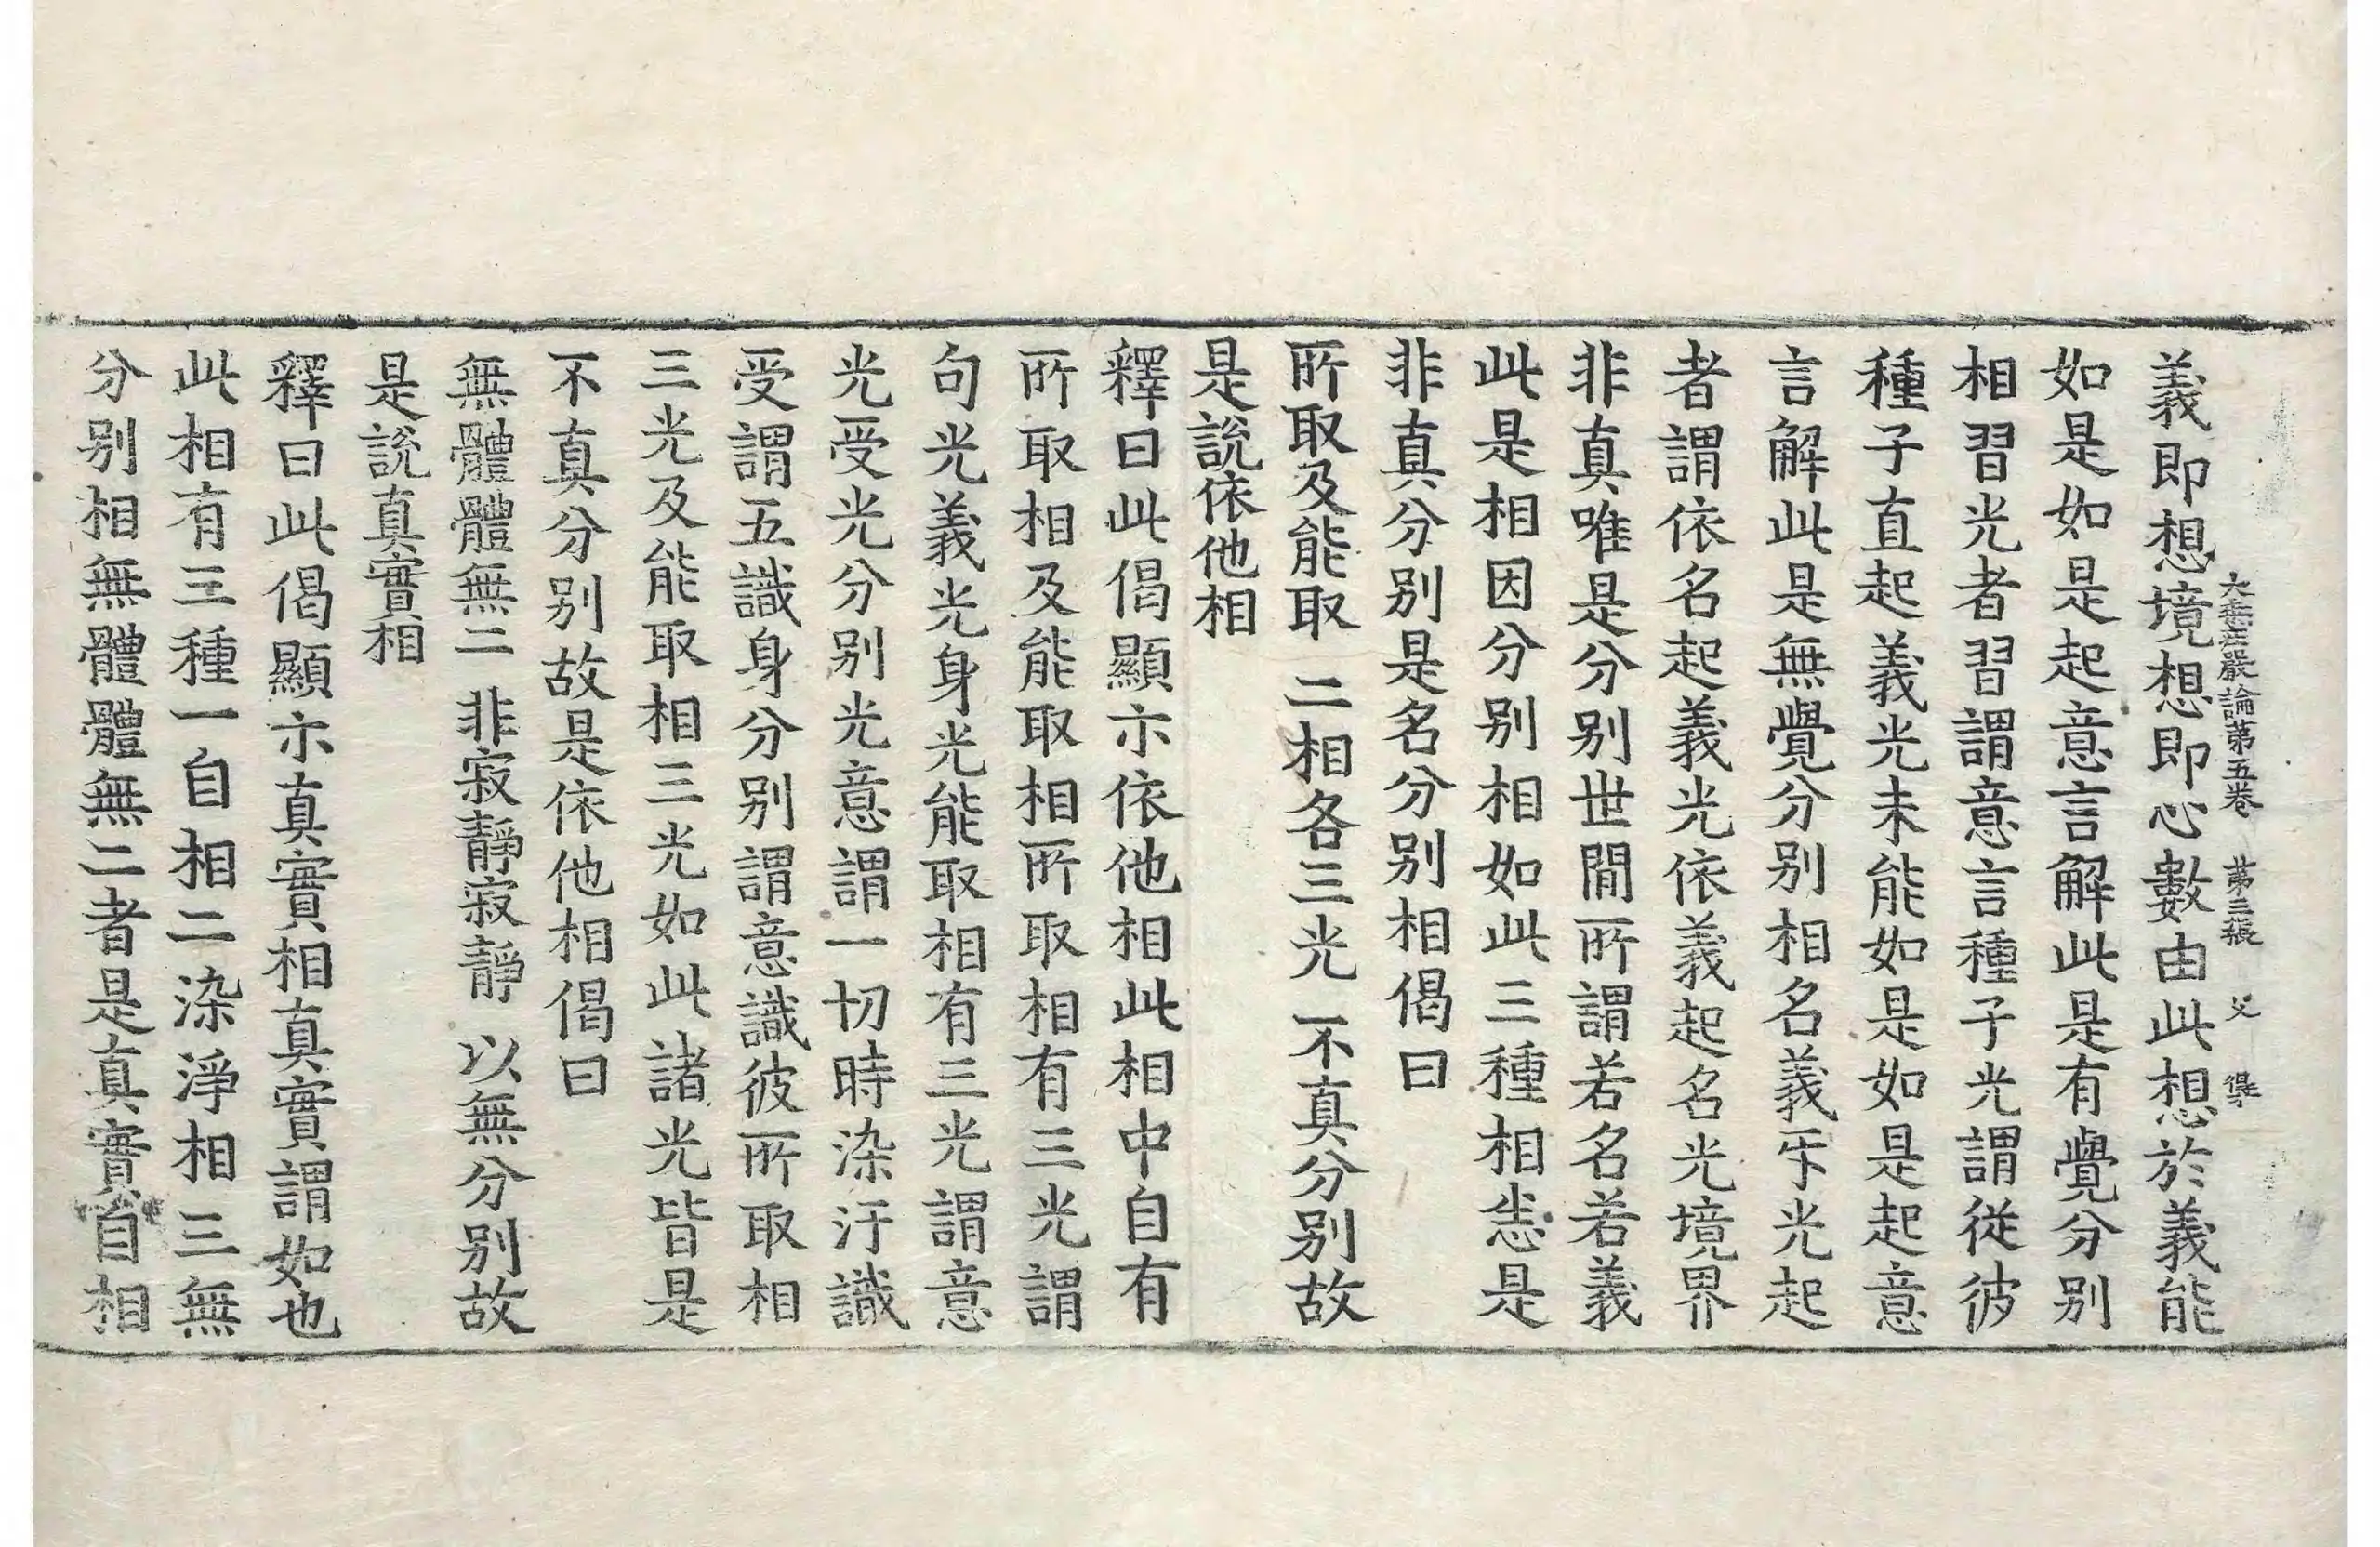 大乗荘嚴論第五卷 第三張 父 得
義即想境想即心數由此想於義能
如是如是起意言解此是有覺分別
相習光者習謂意言種子光謂從彼
種子直起義光未能如是如是起意
言解此是無覺分別相名義㸦光起
者謂依名起義光依義起名光境界
非真唯是分別世間所謂若名若義
此是相因分別相如此三種相悉是
非真分別是名分別相偈曰
所取及能取 二相各三光 不真分別故
是說依他相
釋曰此偈顯示依他相此相中自有
所取相及能取相所取相有三光謂
句光義光身光能取相有三光謂意
光受光分別光意謂一切時染汙識
受謂五識身分別謂意識彼所取相
三光及能取相三光如此諸光皆是
不真分別故是依他相偈曰
無體體無二 非寂靜寂靜 以無分別故
是說真實相
釋曰此偈顯示真實相真實謂如也
此相有三種一自相二染淨相三無
分別相無體體無二者是真實自相